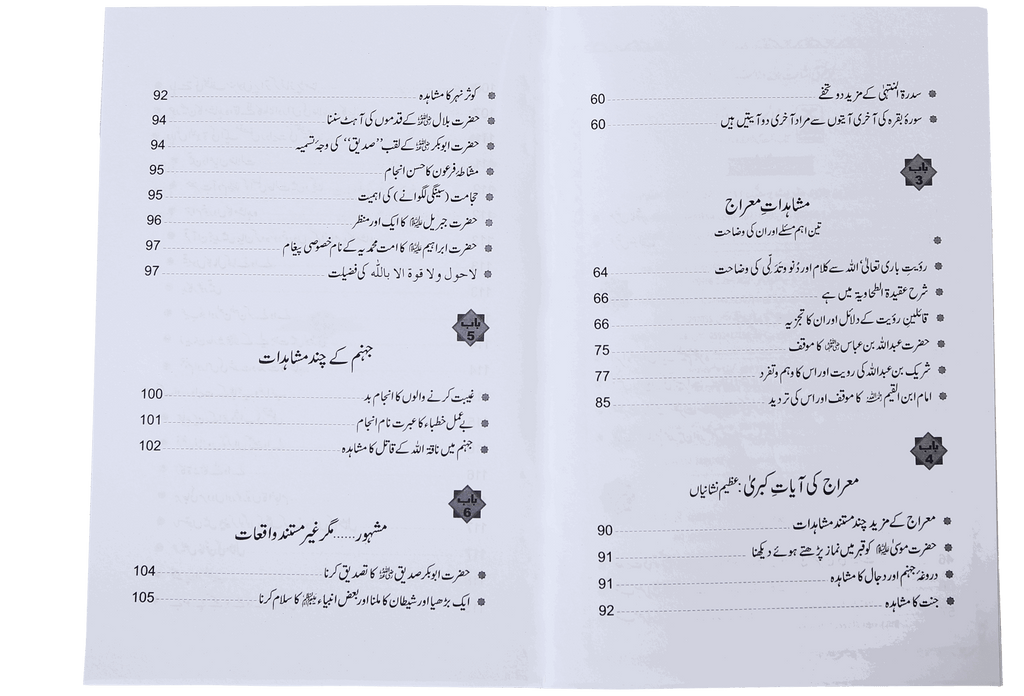 سدرۃ المنتہٰی کے مزید دو تحفے 60
سورۂ بقرہ کی آخری آیتوں سے مراد آخری دو آیتیں ہیں 60
باب 3
مشاہداتِ معراج
تین اہم مسئلے اور ان کی وضاحت
رؤیتِ باری تعالیٰ، اللہ سے کلام اور دُنو و تَدَلّی کی وضاحت 64
شرح عقیدۃ الطحاویۃ میں ہے 66
قائلینِ رؤیت کے دلائل اور ان کا تجزیہ 66
حضرت عبداللہ بن عباس رضی اللہ عنہ کا موقف 75
شریک بن عبداللہ کی رویت اور اس کا وہم و تفرد 77
امام ابن القیم رحمہ اللہ کا موقف اور اس کی تردید 85
باب 4
معراج کی آیاتِ کبریٰ: عظیم نشانیاں
معراج کے مزید چند مستند مشاہدات 90
حضرت موسیٰ علیہ السلام کو قبر میں نماز پڑھتے ہوئے دیکھنا 91
دروغۂ جہنم اور دجال کا مشاہدہ 91
جنت کا مشاہدہ 92
کوثر نہر کا مشاہدہ 92
حضرت بلال رضی اللہ عنہ کے قدموں کی آہٹ سننا 94
حضرت ابوبکر رضی اللہ عنہ کے لقب ”صدیق“ کی وجۂ تسمیہ 94
مشّاطۂ فرعون کا حسن انجام 95
حجامت (سینگی لگوانے) کی اہمیت 95
حضرت جبریل علیہ السلام کا ایک اور منظر 96
حضرت ابراہیم علیہ السلام کا امت محمدیہ کے نام خصوصی پیغام 97
لاحول ولا قوۃ الا باللّٰہ کی فضیلت 97
باب 5
جہنم کے چند مشاہدات
غیبت کرنے والوں کا انجام بد 100
بے عمل خطباء کا عبرت نام انجام 101
جہنم میں ناقۃ اللہ کے قاتل کا مشاہدہ 102
باب 6
مشہور......مگر غیر مستند واقعات
حضرت ابوبکر صدیق رضی اللہ عنہ کا تصدیق کرنا 104
ایک بڑھیا اور شیطان کا ملنا اور بعض انبیاء علیہم السلام کا سلام کرنا 105